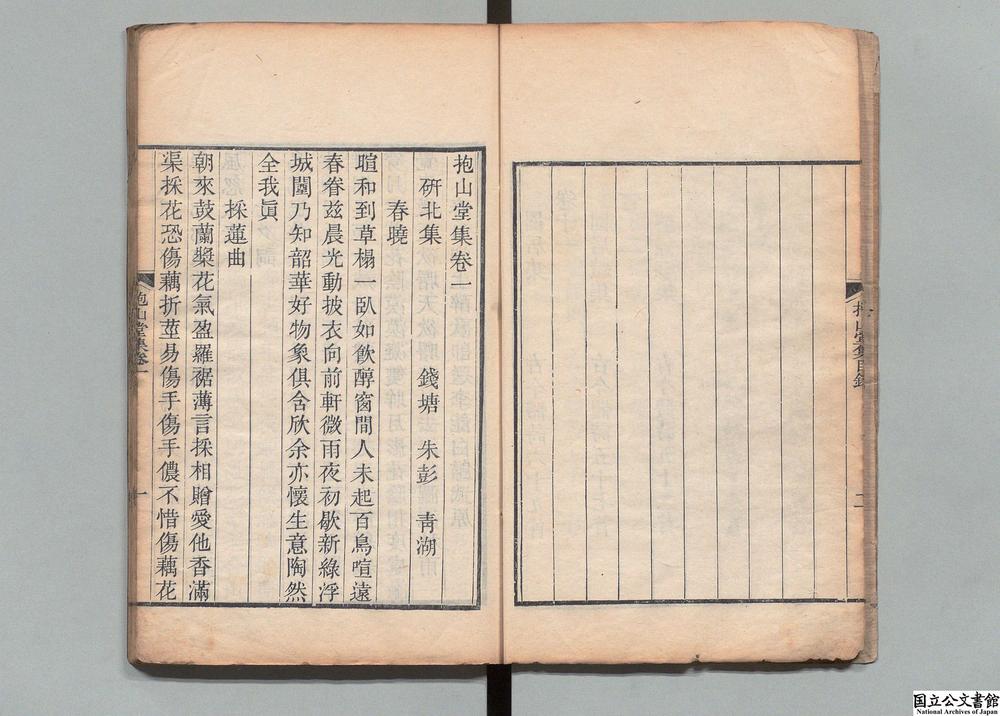 抱山堂集目錄
二
抱山堂集卷一
研北集 錢塘 朱彭 青湖
春曉
暄和到草榻一臥如飲醇窗間人未起百鳥喧遠
春眷兹晨光動披衣向前軒微雨夜初歇新綠浮
城闉乃知韶華好物象俱含欣余亦懷生意陶然
全我眞
採蓮曲
朝來鼓蘭槳花氣盈羅裾薄言採相贈愛他香滿
渠採花恐傷藕折莖易傷手傷手儂不惜傷藕花
抱山堂集卷一
一
国立公文書館
National Archives of Japan